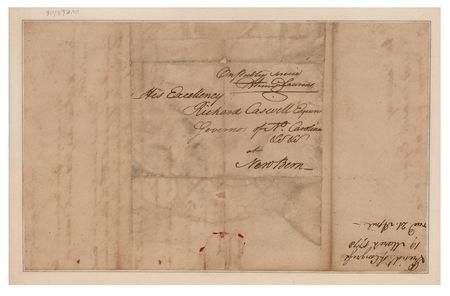 On public Service
Henry Laurens
His Excellency
Richard Caswell Esquire
Governor of No. Carolina
&c &c
at
New Bern
Presidt. of Congress
19 March 1778
recd. 21 April